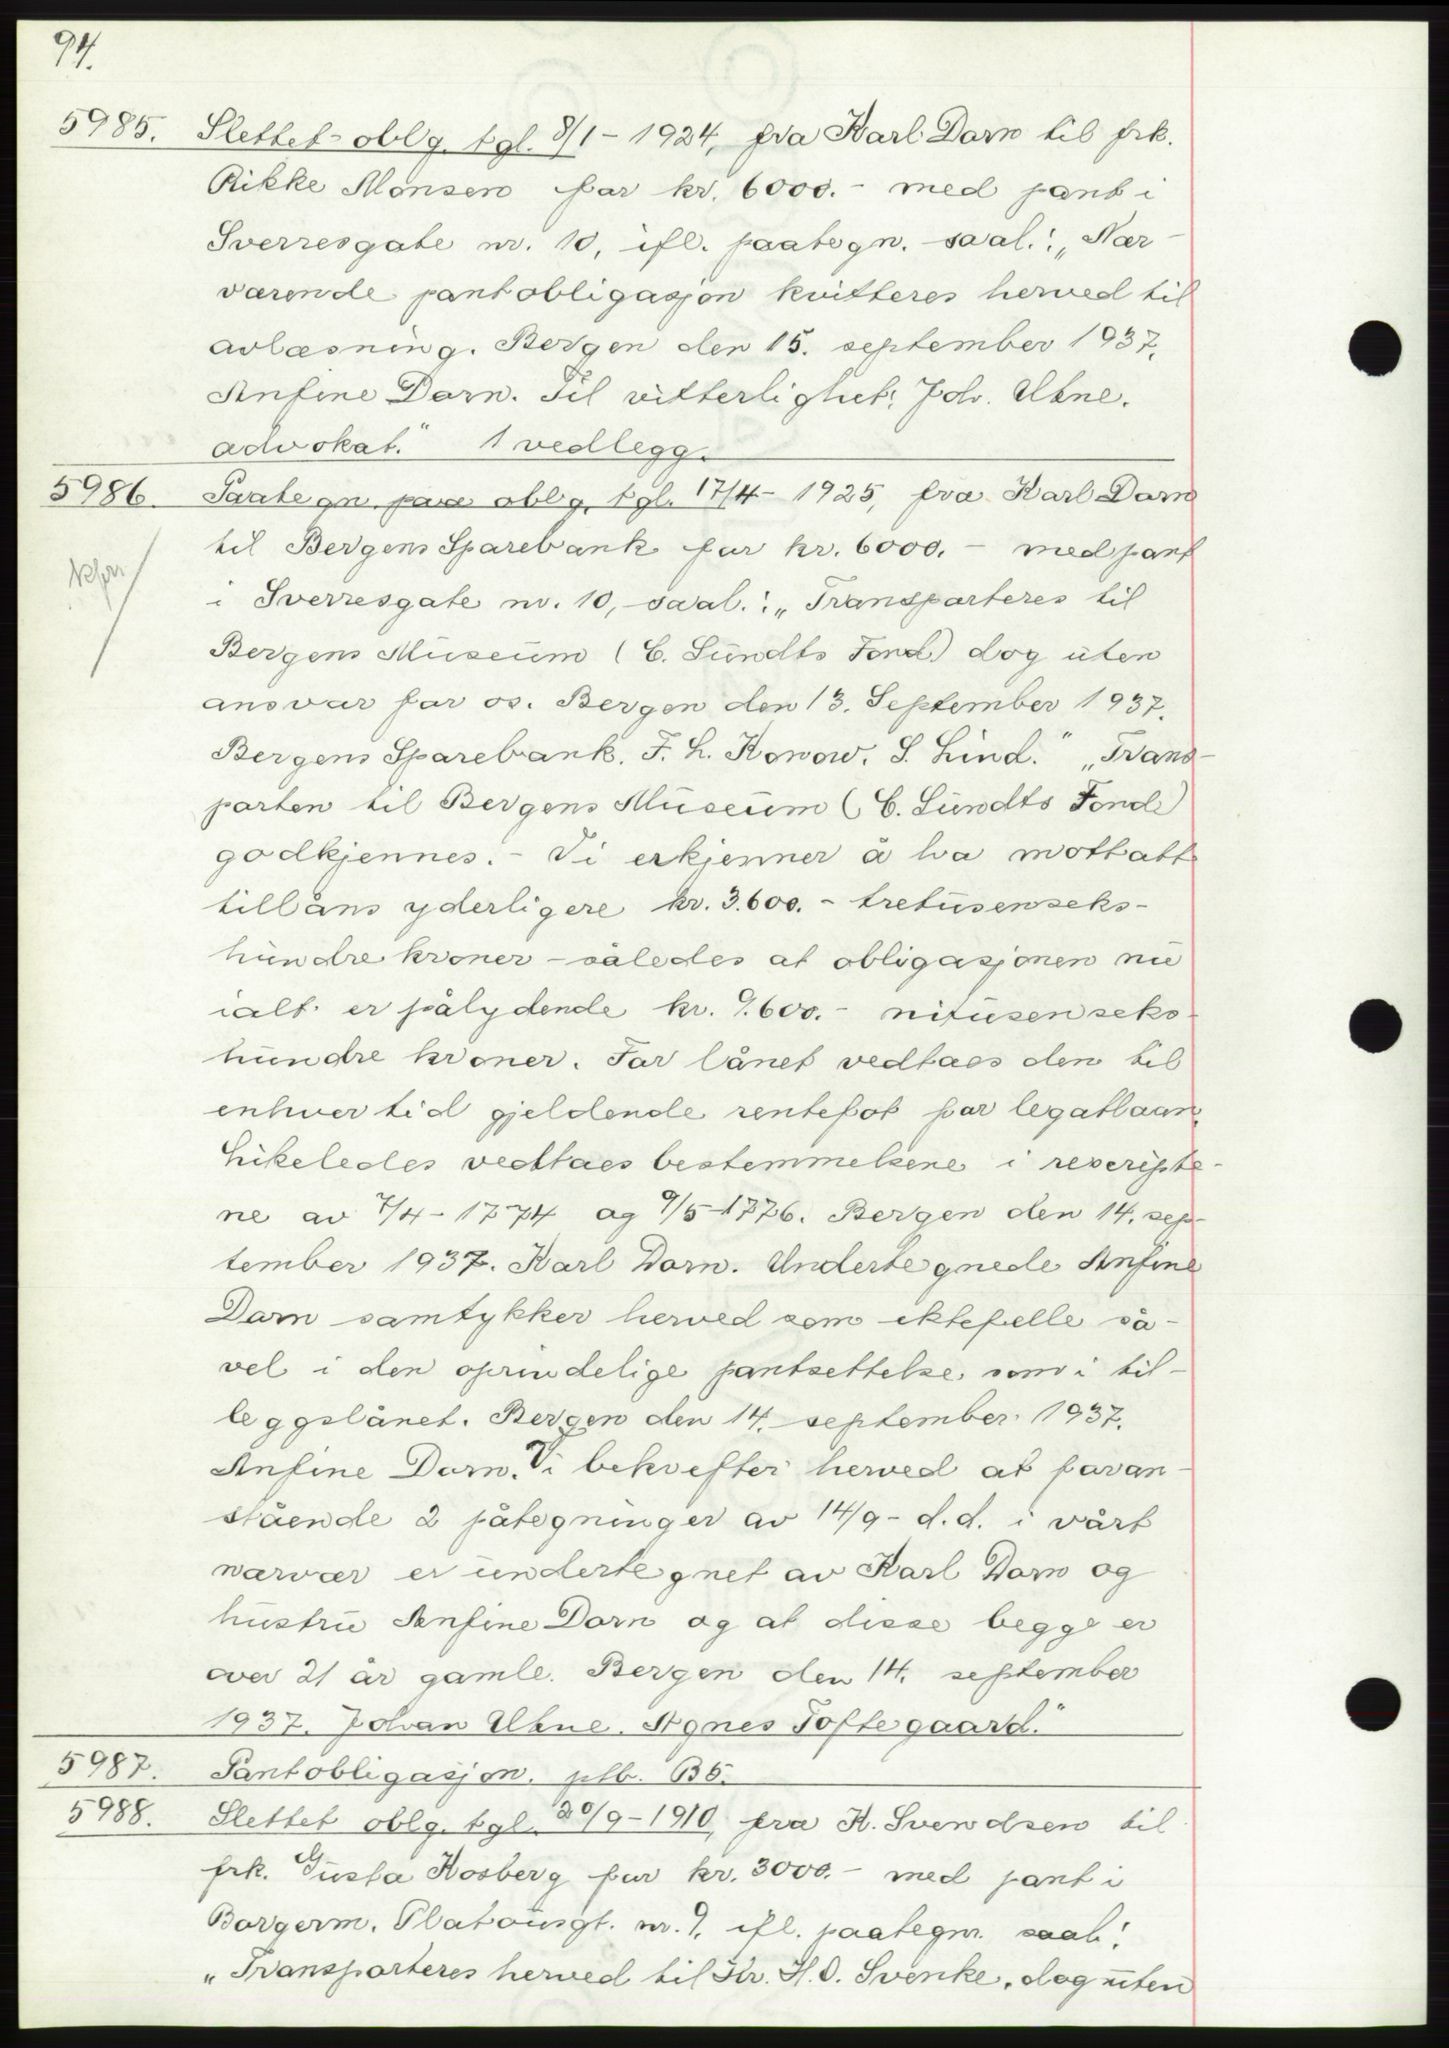 94.
5985. Slettet oblg. tgl. 8/1 - 1924, fra Karl Dorn til frk.
Rikke Monsen for kr. 6000.- med pant i
Sverresgate nr. 10, ifl. paategn. saal.: „Nær-
værende pantobligasjon kvitteres herved til
avlæsning. Bergen den 15. september 1937.
Anfine Dorn. Til vitterlighet: Joh. Utne.
advokat." 1 vedlegg.
5986. Paategn. paa oblg. tgl. 17/4 - 1925, fra Karl Dorn
til Bergens Sparebank for kr. 6000.- med pant
i Sverresgate nr. 10, saal.: „Transporteres til
Bergens Museum (C. Sundts Fond) dog uten
ansvar for os. Bergen den 13. September 1937.
Bergens Sparebank. F. L. Konow. S. Lind." „Trans-
porten til Bergens Museum (C. Sundts Fond)
godkjennes. - Vi erkjenner å ha mottatt
tillåns yderligere kr. 3.600.- tretusenseks-
hundre kroner - således at obligasjonen nu
ialt er pålydende kr. 9.600.- nitusenseks-
hundre kroner. For lånet vedtaes den til
enhver tid gjeldende rentefot for legatlaan.
Likeledes vedtaes bestemmelsene i reseripte-
ne av 7/4 - 1774 og 9/5 - 1776. Bergen den 14. sep-
tember 1937. Karl Dorn. Undertegnede Anfine
Dorn samtykker herved som ektefelle så-
vel i den oprindelige pantsettelse som i til-
leggslånet. Bergen den 14. september 1937.
Anfine Dorn. Vi bekrefter herved at foran-
stående 2 påtegninger av 14/9 - d.d. i vårt
nærvær er undertegnet av Karl Dorn og
hustru Anfine Dorn og at disse begge er
over 21 år gamle. Bergen den 14. september
1937. Johan Utne. Agnes Toftegaard."
5987. Pantobligasjon. ptb. B5.
5988. Slettet oblg. tgl. 20/9 - 1910, fra K. Svendsen til
frk. Gusta Kosberg for kr. 3000.- med pant i
Borgerm. Platousgt. nr. 9, ifl. paategn. saal.:
„Transporteres herved til Hr. H. O. Svenke, dog uten